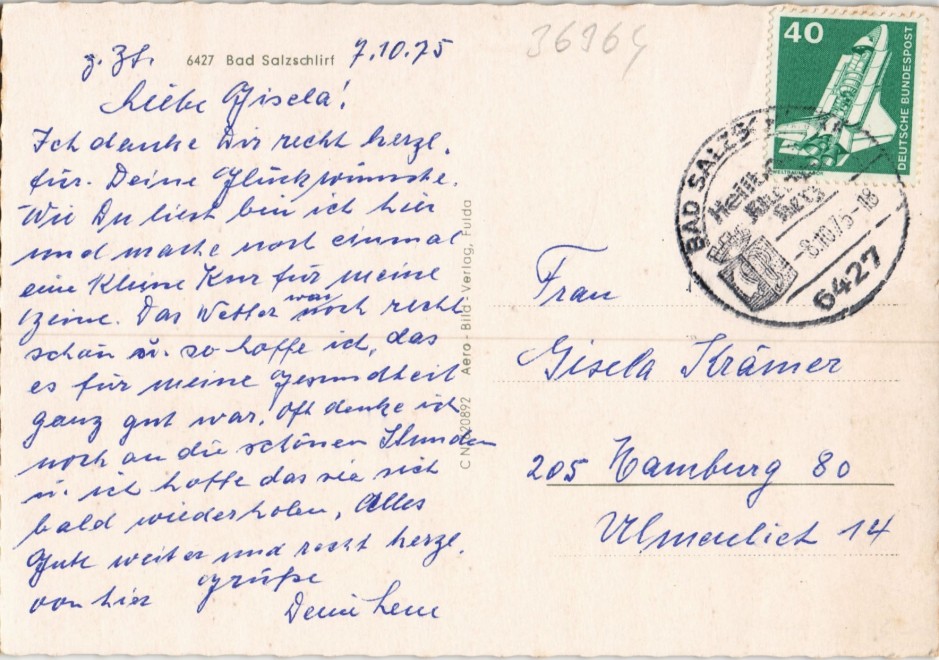 z. Zt. 6427 Bad Salzschlirf 7.10.75
Liebe Gisela!
Ich danke Dir recht herzl.
für Deine Glückwünsche.
Wie Du liest bin ich hier
und mache noch einmal
eine kleine Kur für meine
Beine. Das Wetter war noch recht
schön u. so hoffe ich, das
es für meine Gesundheit
ganz gut war. Oft denke ich
noch an die schönen Stunden
u. ich hoffe das sie sich
bald wiederholen, Alles
Gute weiter und recht herzl.
Grüße
von hier
Deine
C Nr. 20892 Aero-Bild-Verlag, Fulda
36964
40
DEUTSCHE BUNDESPOST
BAD SALZSCHLIRF
-8.10.75-18
6427
Frau
Gisela Krämer
205 Hamburg 80
Ulmenliet 14